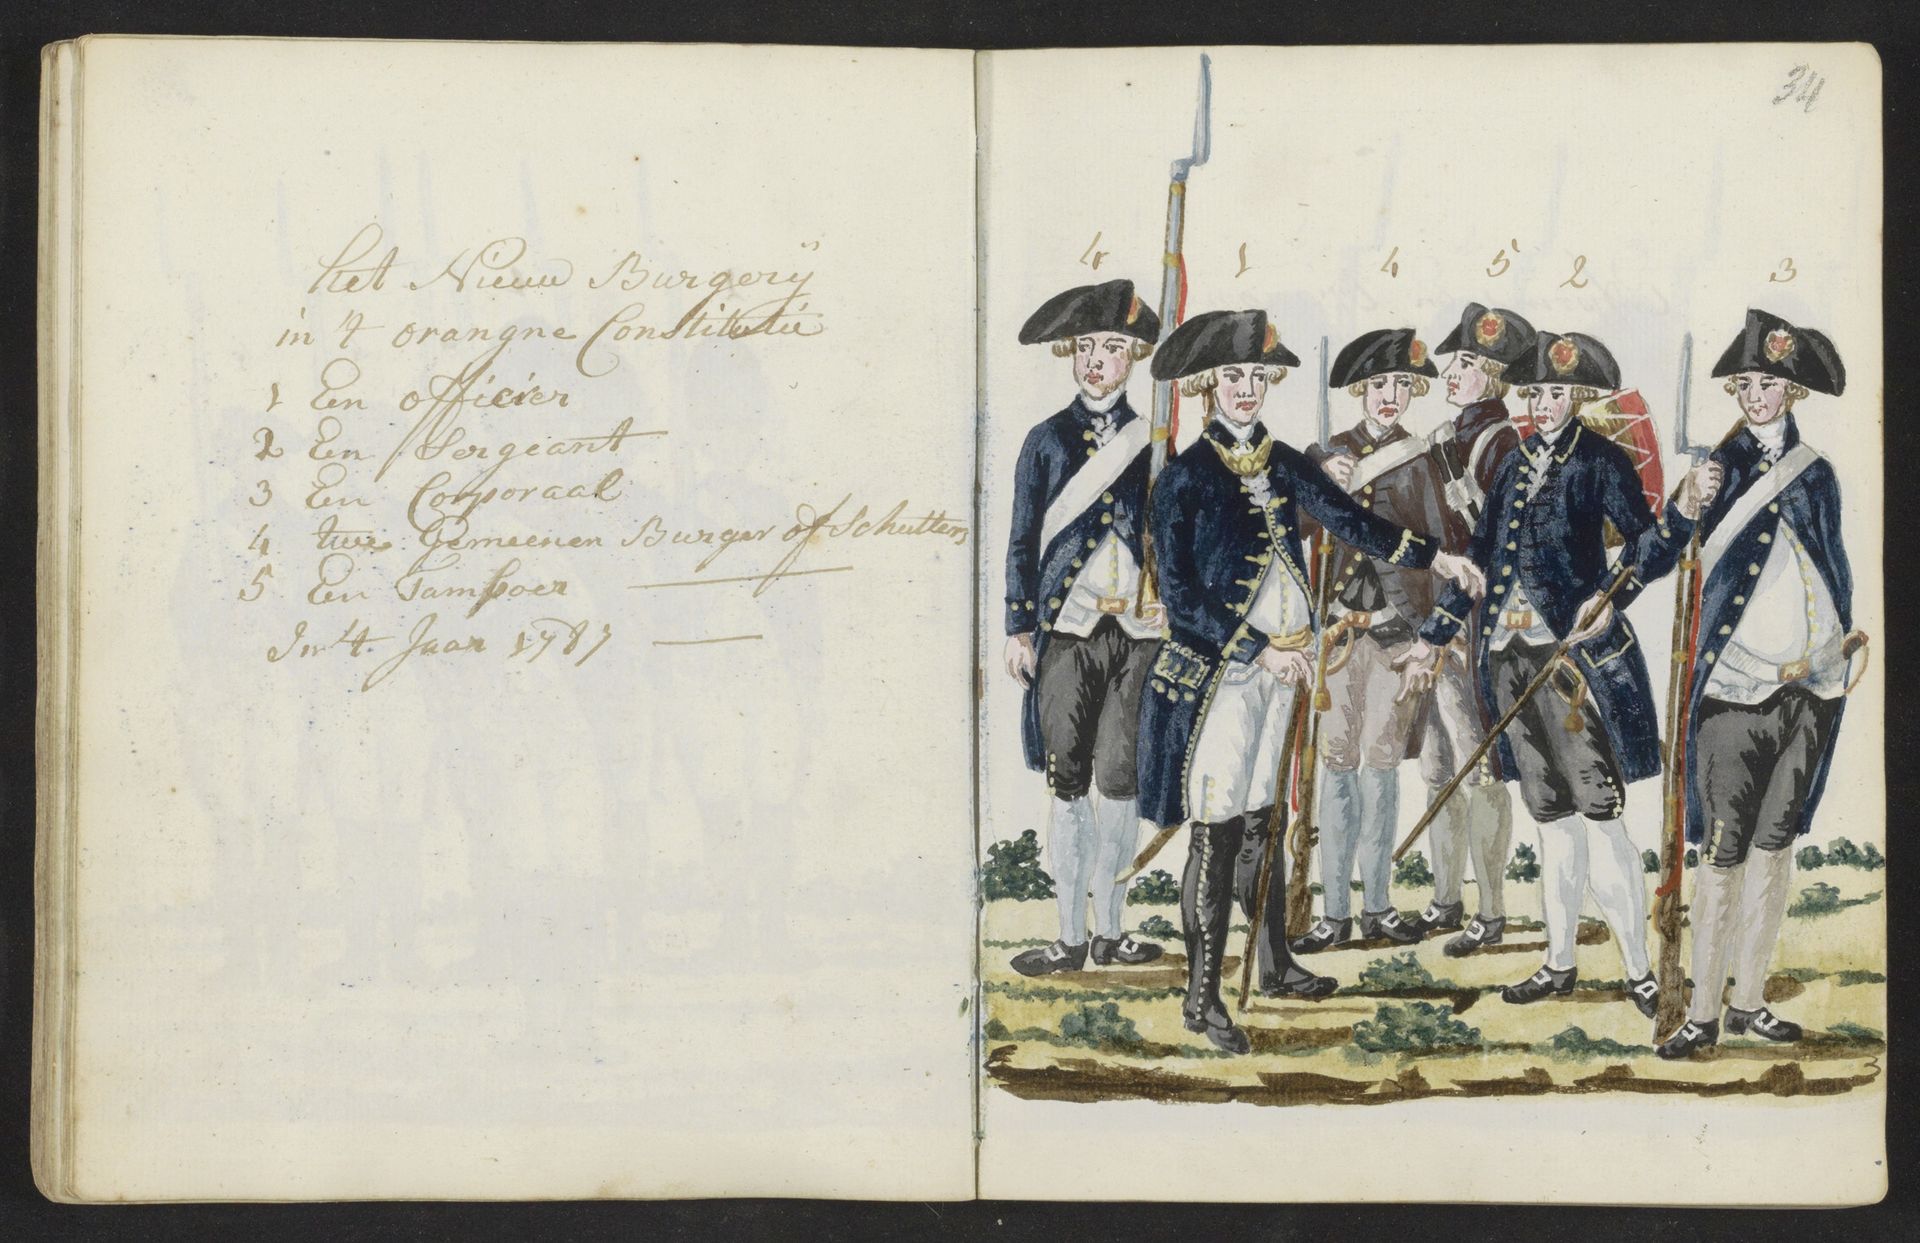 het Nieuw Burgerÿ
in 't orangne Constitutie
1 En officier
2 En Sergeant
3 En Corporaal
4 twe Gemeenen Burger of Schutters
5 En Tamboer
In 't Jaar 1787
34
4 1 4 5 2 3